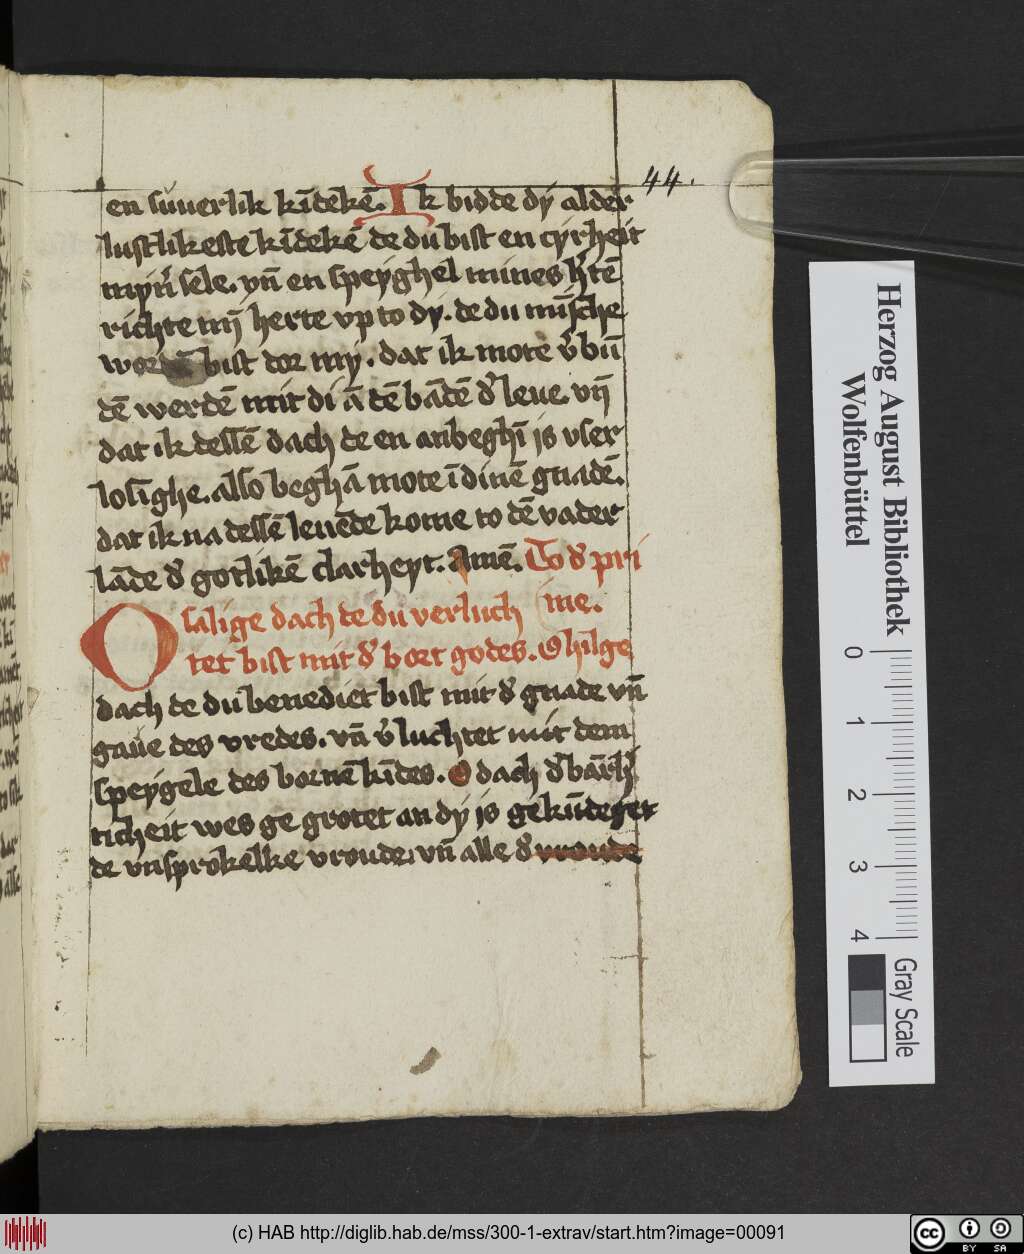 44.
en suuerlik kīdekē. Ik bidde dẏ alder
lustlikeste kīdekē de du bist en cẏrheit
mẏn̄ sele. vn̄ en speẏghel mines h̾tē
richte mī herte vp to dẏ. de du mīsche
wordē bist dor mẏ. dat ik mote v̾bū
dē werdē mit di ā dē bādē d̾ leue. vn̄
dat ik dessē dach de en anbeghī is vser
losīghe. also beghā mote ī dinē gnadē.
dat ik na dessē leuēde kome to dē vader
lāde d̾ gotlikē clarheyt. Amē. To d̾ pri
me.
O salige dach de du verluch
tet bist mit d̾ bort godes. O hilge
dach de du benediet bist mit d̾ gnade vn̄
gaue des vredes. vn̄ v̾luchtet mit dem
speẏgele des bornē kīdes. O dach d̾ bārh̾
ticheit wes ge grotet an dẏ is gekūdeget
de vnsprokelke vroude. vn̄ alle d̾ vroude
Herzog August Bibliothek
Wolfenbüttel
0 1 2 3 4
Gray Scale
(c) HAB http://diglib.hab.de/mss/300-1-extrav/start.htm?image=00091
cc BY SA